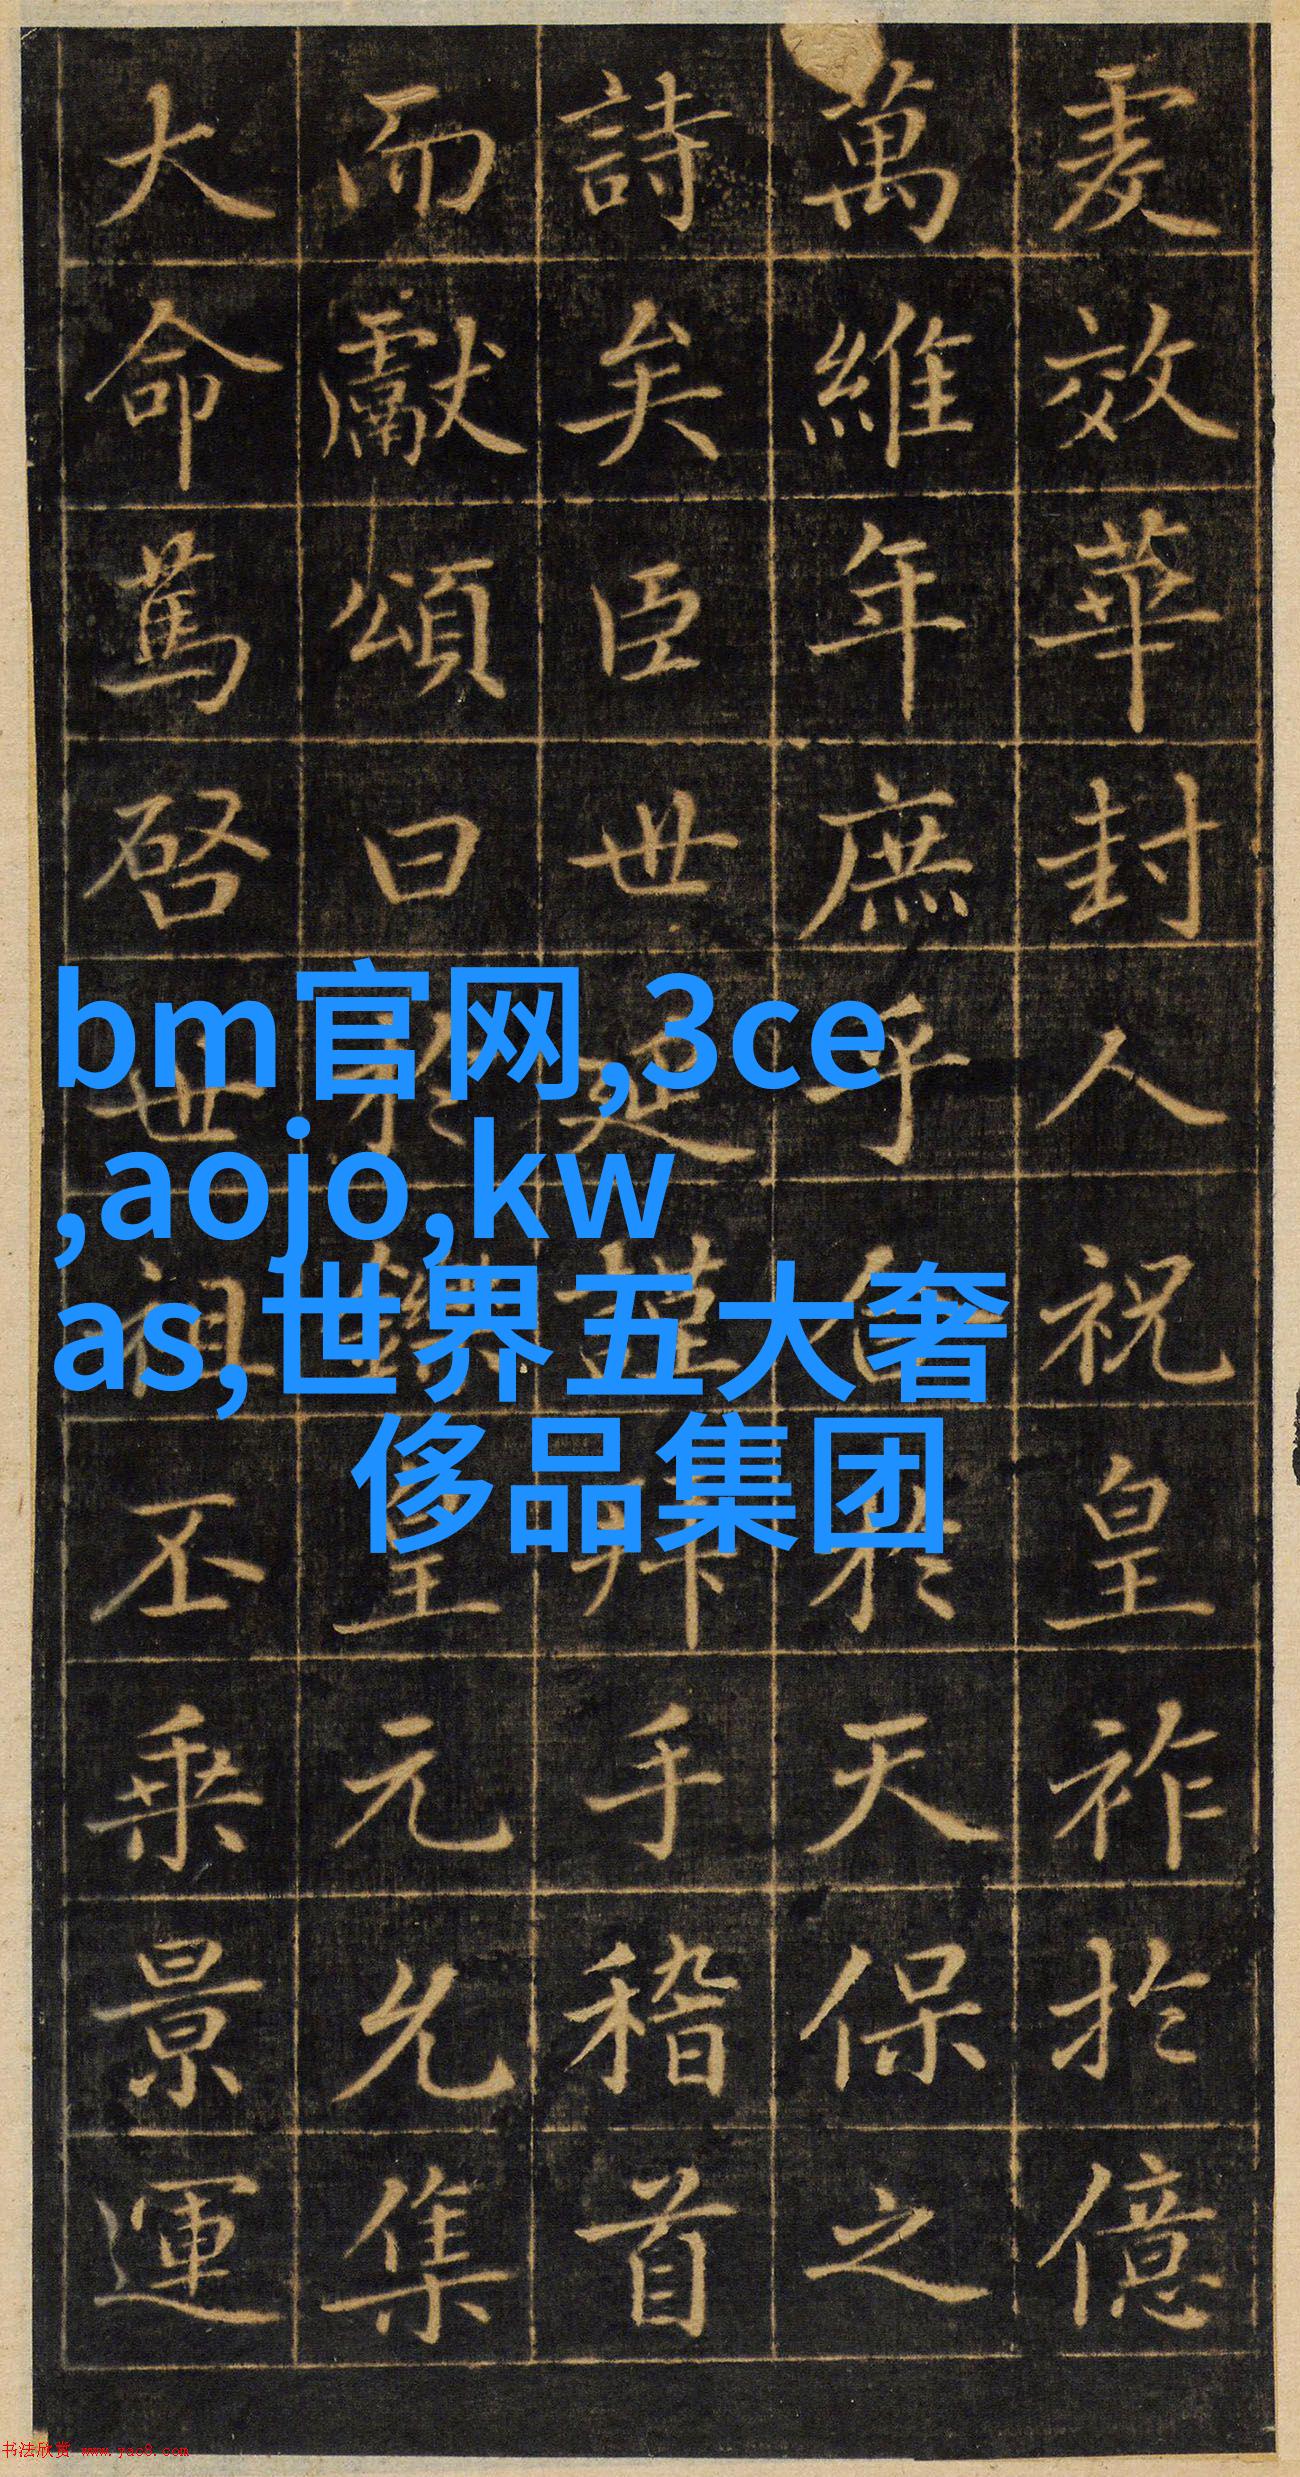 爰效華封人祝皇祚於億
萬維年庶乎於天保之
詩矣臣世延謹拜手稽首
而獻頌曰於鑠皇元允集
大命篤啓世祖丕乘景運
bm官网,3ce
,aojo,kw
as,世界五大奢
侈品集团
书法欣赏 www.yac8.com